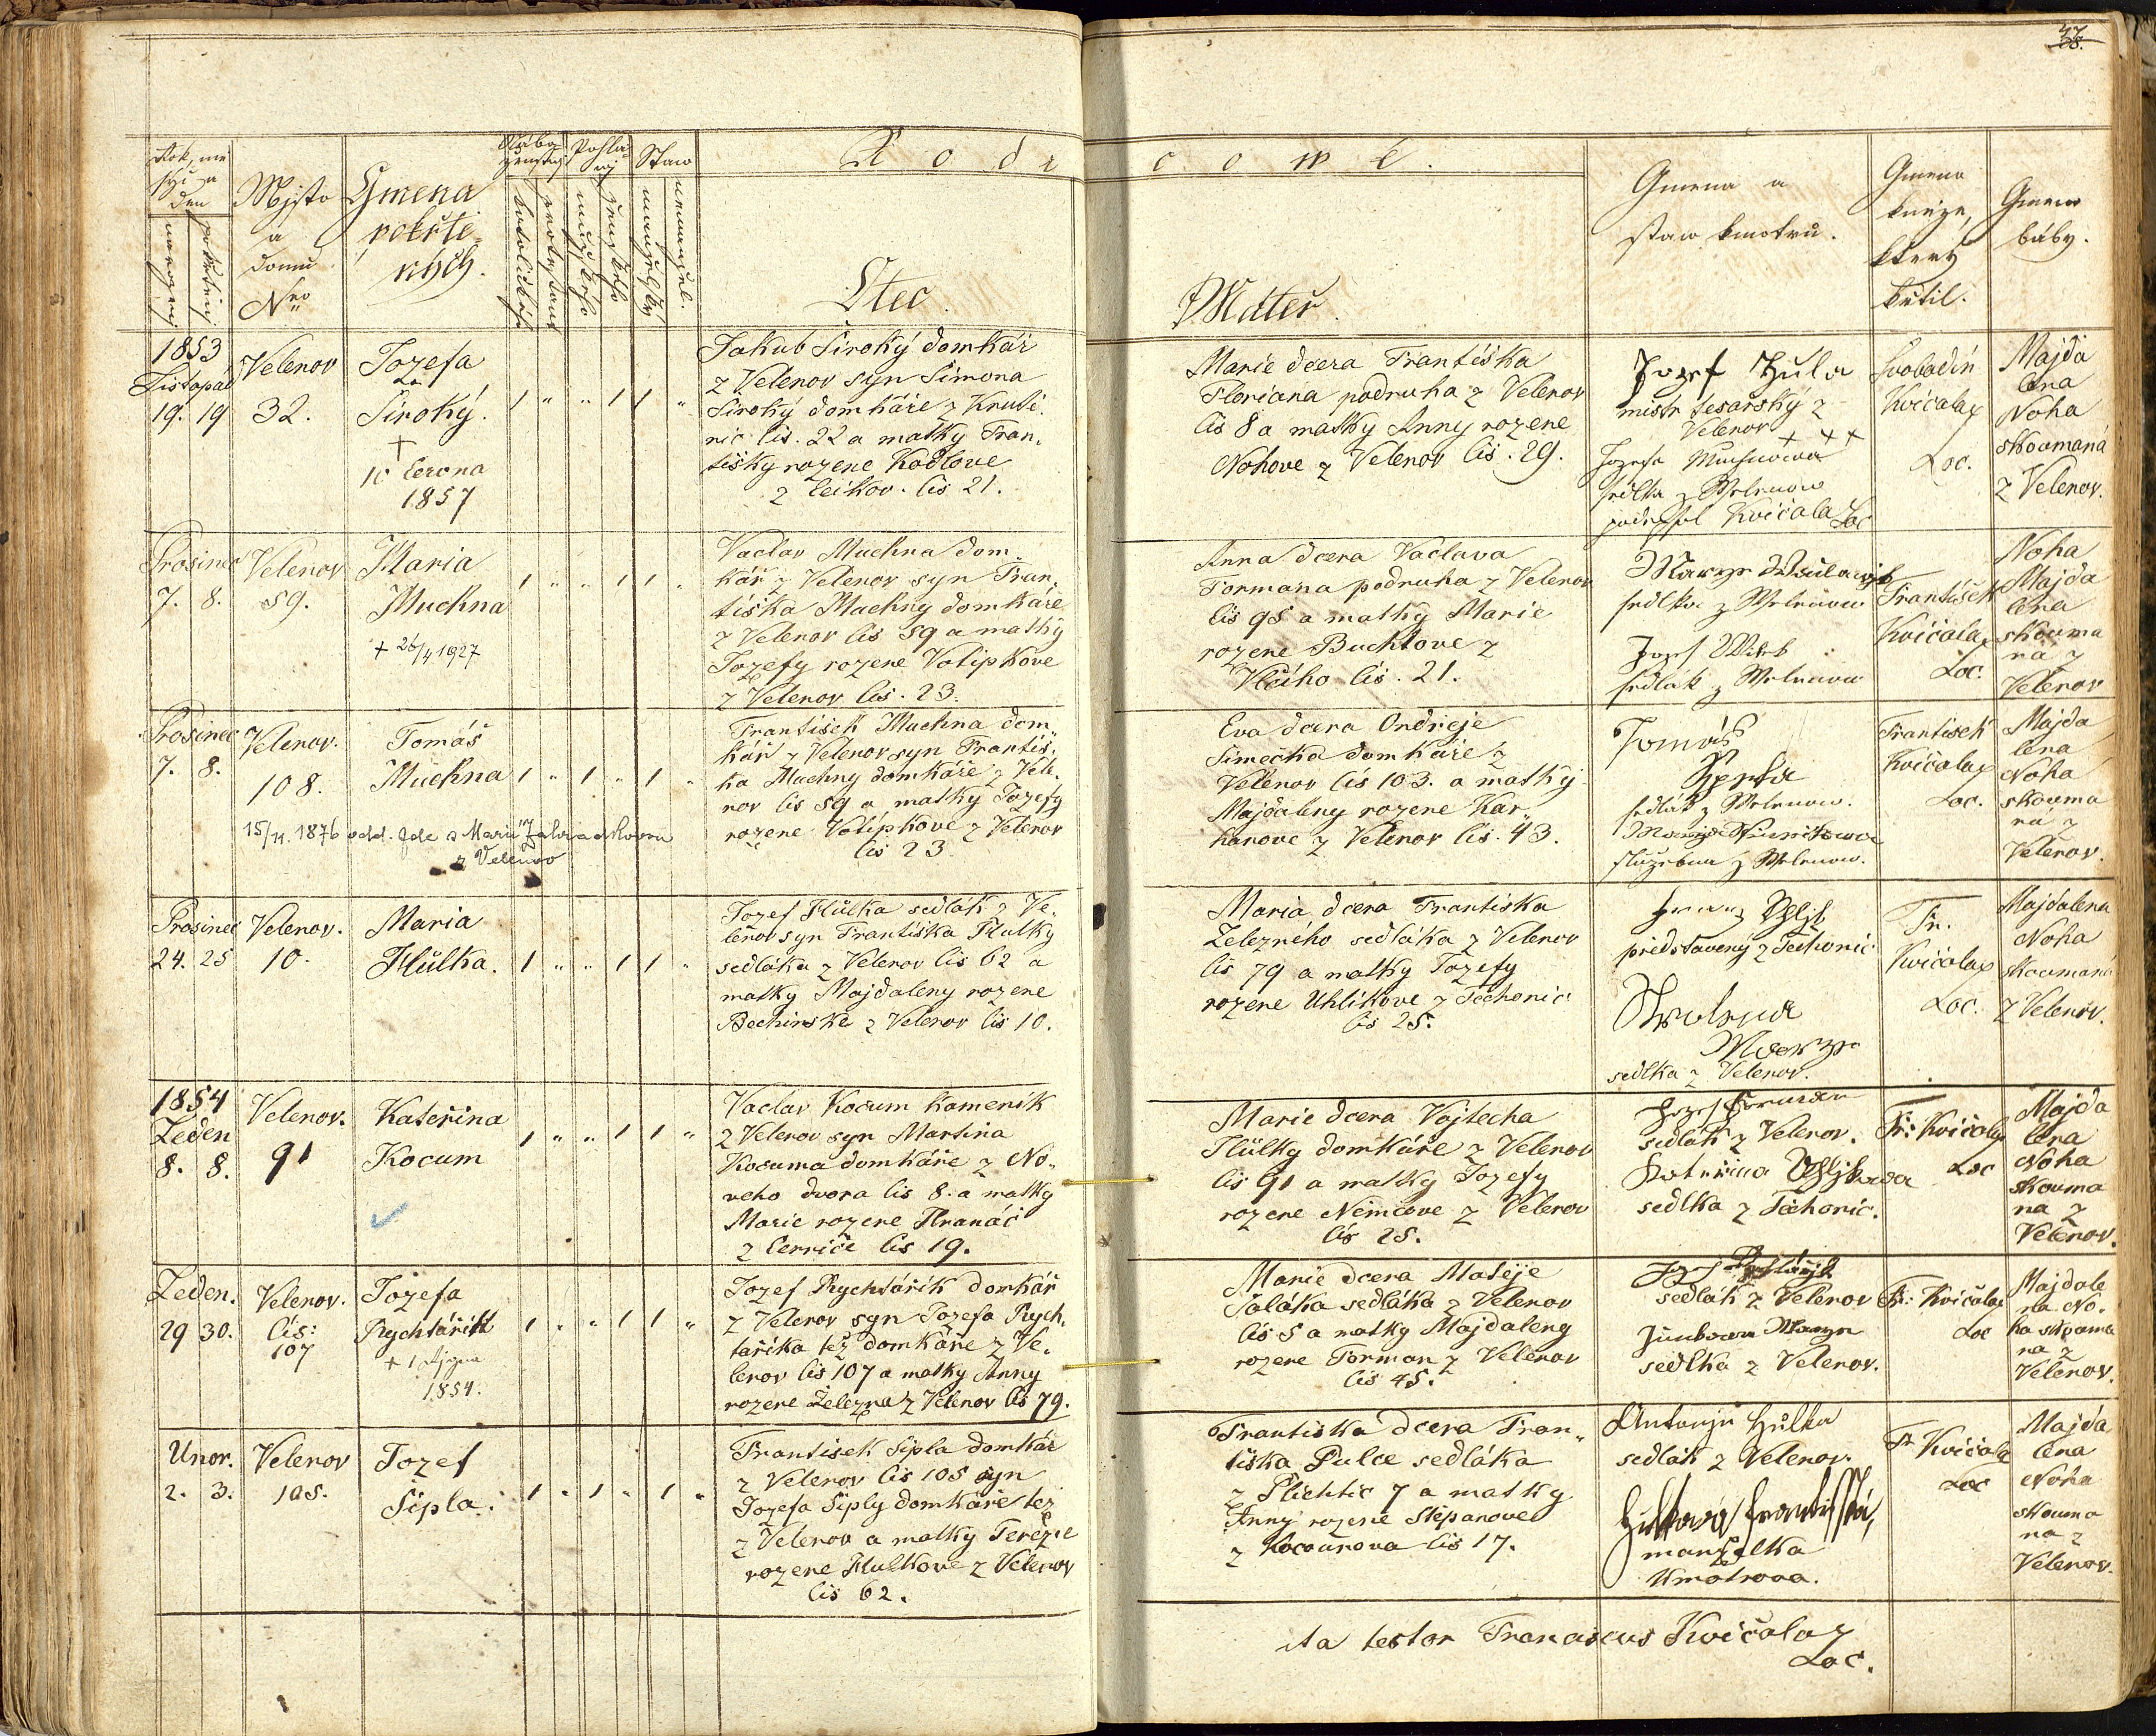 47
Rodicowé.
Mjsto
a
domu
Nro
Gmena
pokřte-
ných.
Nábo-
ženstvj
Pohla-
wj
Staw
Otec
Máteř.
Gmena a
staw kmotrů.
Gmeno
kněze,
který
křtil.
Gmeno
báby.
1853
Listopad
19. 19
Velenov
32.
Jozefa
Široký.
+
10 Června
1857
1 " " 1 1 "
Jakub Široký domkář
z Velenov syn Šimona
Široký domkáře z Kruši
nic čis. 22 a matky Fran,
tišky rozene Kodlove
z Čeikov. čis 21.
Marie dcera Františka
Floriana podruha z Velenov
čis 8 a matky Anny rozene
Nohove z Velenov čis. 29.
Jozef Hula
mistr tesařský z
Velenov + + +
Jozefa Muchnowa
sedlka z Welenow
podepsal Kvičala Loc
Kvičala
Loc.
Majda
lena
Noha
skoumaná
z Velenov.
Prosinec
7. 8.
Velenov
59.
Maria
Muchna
+ 26/4 1927
1 " " 1 1 "
Vaclav Muchna dom-
kář z Velenov syn Fran,
tiška Muchny domkáře
z Velenov čis 59 a matky
Jozefy rozene Votipkove
z Velenov čis. 23.
Anna dcera Vaclava
Formana podruha z Velenov
čis 95 a matky Marie
rozene Buchtove z
Vlčiho čis. 21.
sedlka z Welenow
Jozef
sedlak z Welenow
František
Kvičala
Loc.
Noha
Majda
lena
skouma
na z
Velenov
Prosinec
7. 8.
Velenov.
108.
Tomáš
Muchna
15/11. 1876 odd. zde s Marií Zahradkovou
z Velenov
1 " 1 " 1 "
František Muchna dom-
kář z Velenov syn Františ,
ka Muchny domkáře z Vele,
nov čis 59 a matky Jozefy
rozene Votipkove z Velenov
čis 23
Eva dcera Ondřeje
Šimečka domkáře z
Velenov čis 103. a matky
Majdaleny rozene Kar-
hanove z Velenov čis. 43.
Tomáš
sedlák z Welenow.
služebna z Welenow.
František
Kvičala
Loc.
Majda
lena
Noha
skouma
na z
Velenov.
Prosinec
24. 25
Velenov.
10.
Maria
Hůlka.
1 " " 1 1 "
Jozef Hůlka sedlák z Ve,
lenov syn Františka Hulky
sedláka z Velenov čis 62 a
matky Majdaleny rozene
Bechinske z Velenov čis 10.
Maria dcera Františka
Železného sedláka z Velenov
čis 79 a matky Jozefy
rozene Uhlikove z Těchonic
čis 25.
představený z Těchonic
sedlka z Velenov.
Fr.
Kvičala
Loc.
Majdalena
Noha
skoumaná
z Velenov.
1854
Leden
8. 8.
Velenov.
91
Kateřina
Kocum
1 " " 1 1 "
Vaclav Kocum kameník
z Velenov syn Martina
Kocuma domkáře z No-
veho dvora čis 8. a matky
Marie rozene Hranáč
z Černiče čis 19.
Marie dcera Vojtecha
Hůlky domkáře z Velenov
čis 91 a matky Jozefy
rozene Němcove z Velenov
čis 25.
Jozef
sedlák z Velenov.
Kateřina
sedlka z Těchonic.
Fr: Kvičala
Loc
Majda
lena
Noha
skouma
na z
Velenov.
Leden.
29 30.
Velenov.
čis:
107
Jozefa
Rychtářík
1854.
1 " " 1 1 "
Jozef Rychtářík domkář
z Velenov syn Jozefa Rych,
taříka též domkáře z Ve,
lenov čis 107 a matky Anny
rozene Železna z Velenov čis 79.
Marie dcera Matěje
Šaláka sedláka z Velenov
čis 5 a matky Majdaleny
rozene Forman z Velenov
čis 45.
Jozef
sedlak z Velenov
sedlka z Velenov.
Fr: Kvičala
Loc
Majdale
na No-
ha skouma
na z
Velenov.
Unor.
2. 3.
Velenov
105.
Jozef
Šipla.
1 " 1 " 1 "
Frantisek Šipla domkář
z Velenov čis 105 syn
Jozefa Šiply domkáře tez
z Velenov a matky Terezie
rozene Hulkove z Velenov
čis 62.
Františka dcera Fran-
tiška Pulce sedláka
z Plichtic 7 a matky
Anny rozene Štěpanove
z Kocourova čis 17.
Antonjn Hulka
sedlák z Velenov.
Hulkova Františka,
manželka
kmotrova.
Fr Kvičala
Loc
Majda
lena
Noha
skouma
na z
Velenov.
Ita testor Franciscus Kvičala
Loc.